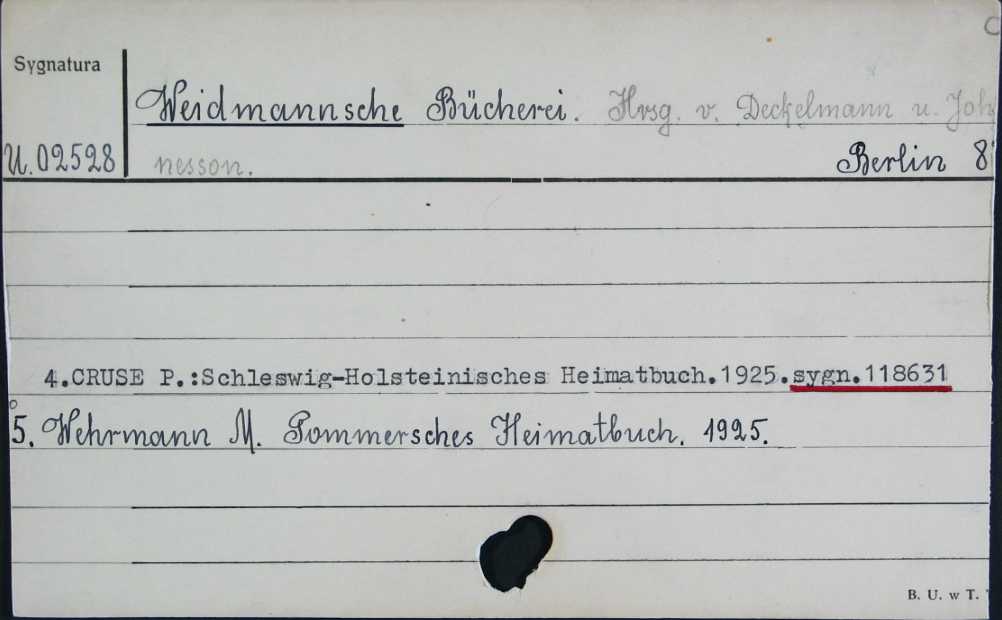 Sygnatura
Weidmannsche Bücherei. Hrsg. v. Deckelmann u. Joh
U.02528 nesson. Berlin 8
4.CRUSE P.:Schleswig-Holsteinisches Heimatbuch.1925.sygn.118631
5. Wehrmann M. Pommersches Heimatbuch. 1925.
B. U. w T.